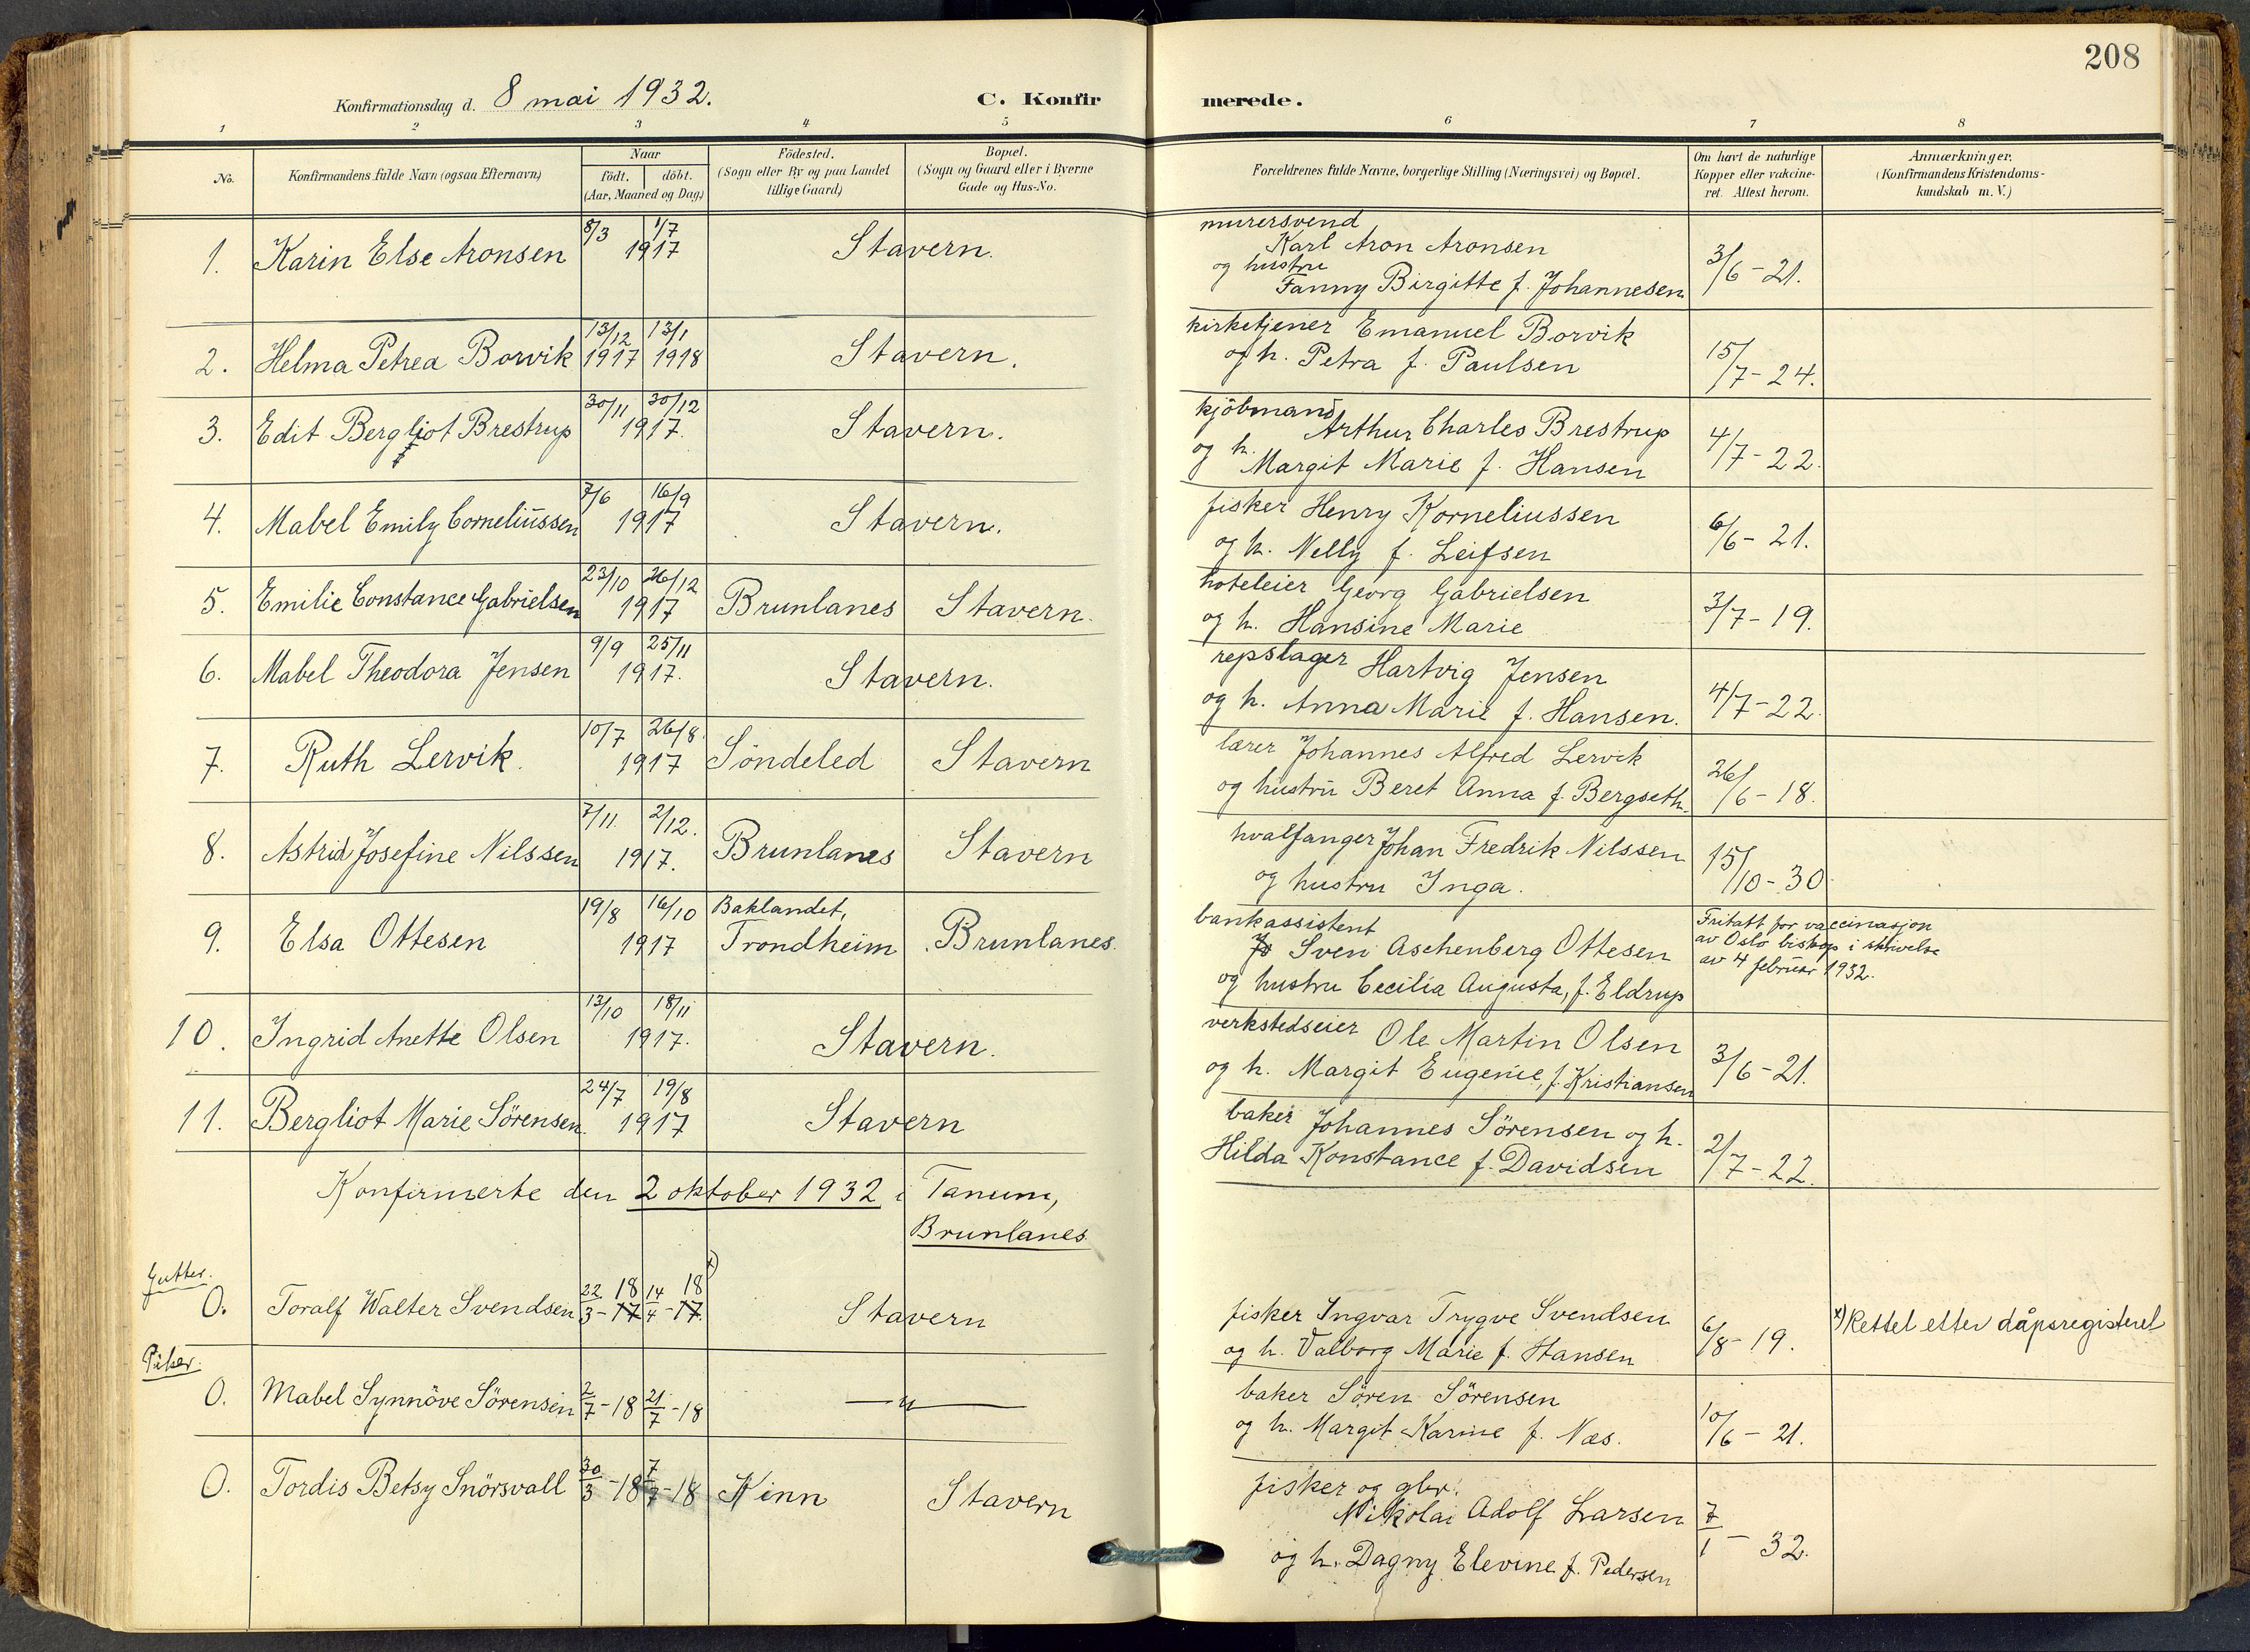 208
Konfirmationsdag d. 8 mai 1932. C. Konfirmerede.
1 2 3 4 5 6 7 8
No.
Konfirmandens fulde Navn (ogsaa Efternavn)
Naar
födt. döbt.
(Aar, Maaned og Dag.)
Födested.
(Sogn eller By og paa Landet
tillige Gaard)
Bopæl.
(Sogn og Gaard eller i Byerne
Gade og Hus-No.
Forældrenes fulde Navne, borgerlige Stilling (Næringsvei) og Bopæl.
Om havt de naturlige
Kopper eller vakcine-
ret. Attest herom.
Anmærkninger.
(Konfirmandens Kristendoms-
kundskab m. V.)
1. Karin Else Aronsen 8/3 1/7 1917 Stavern.
murersvend
Karl Aron Aronsen
og hustru
Fanny Birgitte f. Johannesen 3/6-21.
2. Helma Petrea Borvik 13/12 1917 13/1 1918 Stavern.
kirketjener Emanuel Borvik
og h. Petra f. Paulsen 15/7-24.
3. Edit Bergliot Brestrup 30/11 30/12 1917. Stavern.
kjöbmand
Arthur Charles Brestrup
og h.
Margit Marie f. Hansen 4/7-22.
4. Mabel Emily Corneliussen 7/6 16/9 1917 Stavern.
fisker Henry Korneliussen
og h. Nelly f. Leifsen 6/6-21.
5. Emilie Constance Gabrielsen 23/10 26/12 1917 Brunlanes Stavern.
hoteleier Georg Gabrielsen
og h. Hansine Marie 3/7-19.
6. Mabel Theodora Jensen 9/9 25/11 1917. Stavern.
repslager Hartvig Jensen
og h. Anna Marie f. Hansen. 4/7-22.
7. Ruth Lervik. 10/7 26/8. 1917 Söndeled Stavern
lærer Johannes Alfred Lervik
og hustru Beret Anna f. Bergseth. 26/6-18.
8. Astrid Josefine Nilssen 7/11. 2/12. 1917. Brunlanes Stavern
hvalfanger Johan Fredrik Nilssen
og hustru Inga. 15/10-30
9. Elsa Ottesen 19/8 16/10 1917 Baklandet,
Trondheim Brunlanes.
bankassistent
Sven Aschenberg Ottesen
og hustru Cecilia Augusta, f. Eldrup
Fritatt for vaccinasjon
av Oslo biskop i skrivelse
av 4 februar 1932.
10. Ingrid Anette Olsen 13/10 18/11 1917. Stavern.
verkstedseier Ole Martin Olsen
og h. Margit Eugenie, f. Kristiansen 3/6-21.
11. Bergliot Marie Sörensen. 24/7 19/8 1917 Stavern
baker Johannes Sörensen og h.
Hilda Konstance f. Davidsen 2/7-22.
Konfirmerte den 2 oktober 1932 i Tanum,
Brunlanes
Gutter.
0. Toralf Walter Svendsen 22/3-17 18 14/4-17. 18 x) Stavern
fisker Ingvar Trygve Svendsen
og h. Valborg Marie f. Hansen 6/8-19. x) Rettet etter dåpsregisteret
Piker.
0. Mabel Synnöve Sörensen 2/7-18 21/7-18 —"—
baker Sören Sörensen
og h. Margit Karine f. Næs. 10/6-21.
0. Tordis Betsy Snörsvall 30/3-18 7/7-18 Kinn Stavern
fisker og gbr.
Nikolai Adolf Larsen
og h. Dagny Elevine f. Pedersen 7/1-32.